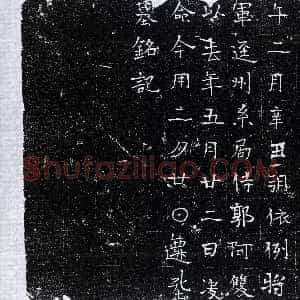 午二月辛丑朔依例將
軍逕州系局使郭阿雙
以去年五月廿二日
命今用二月廿〇遷
墓銘記
Shufaziliao.com